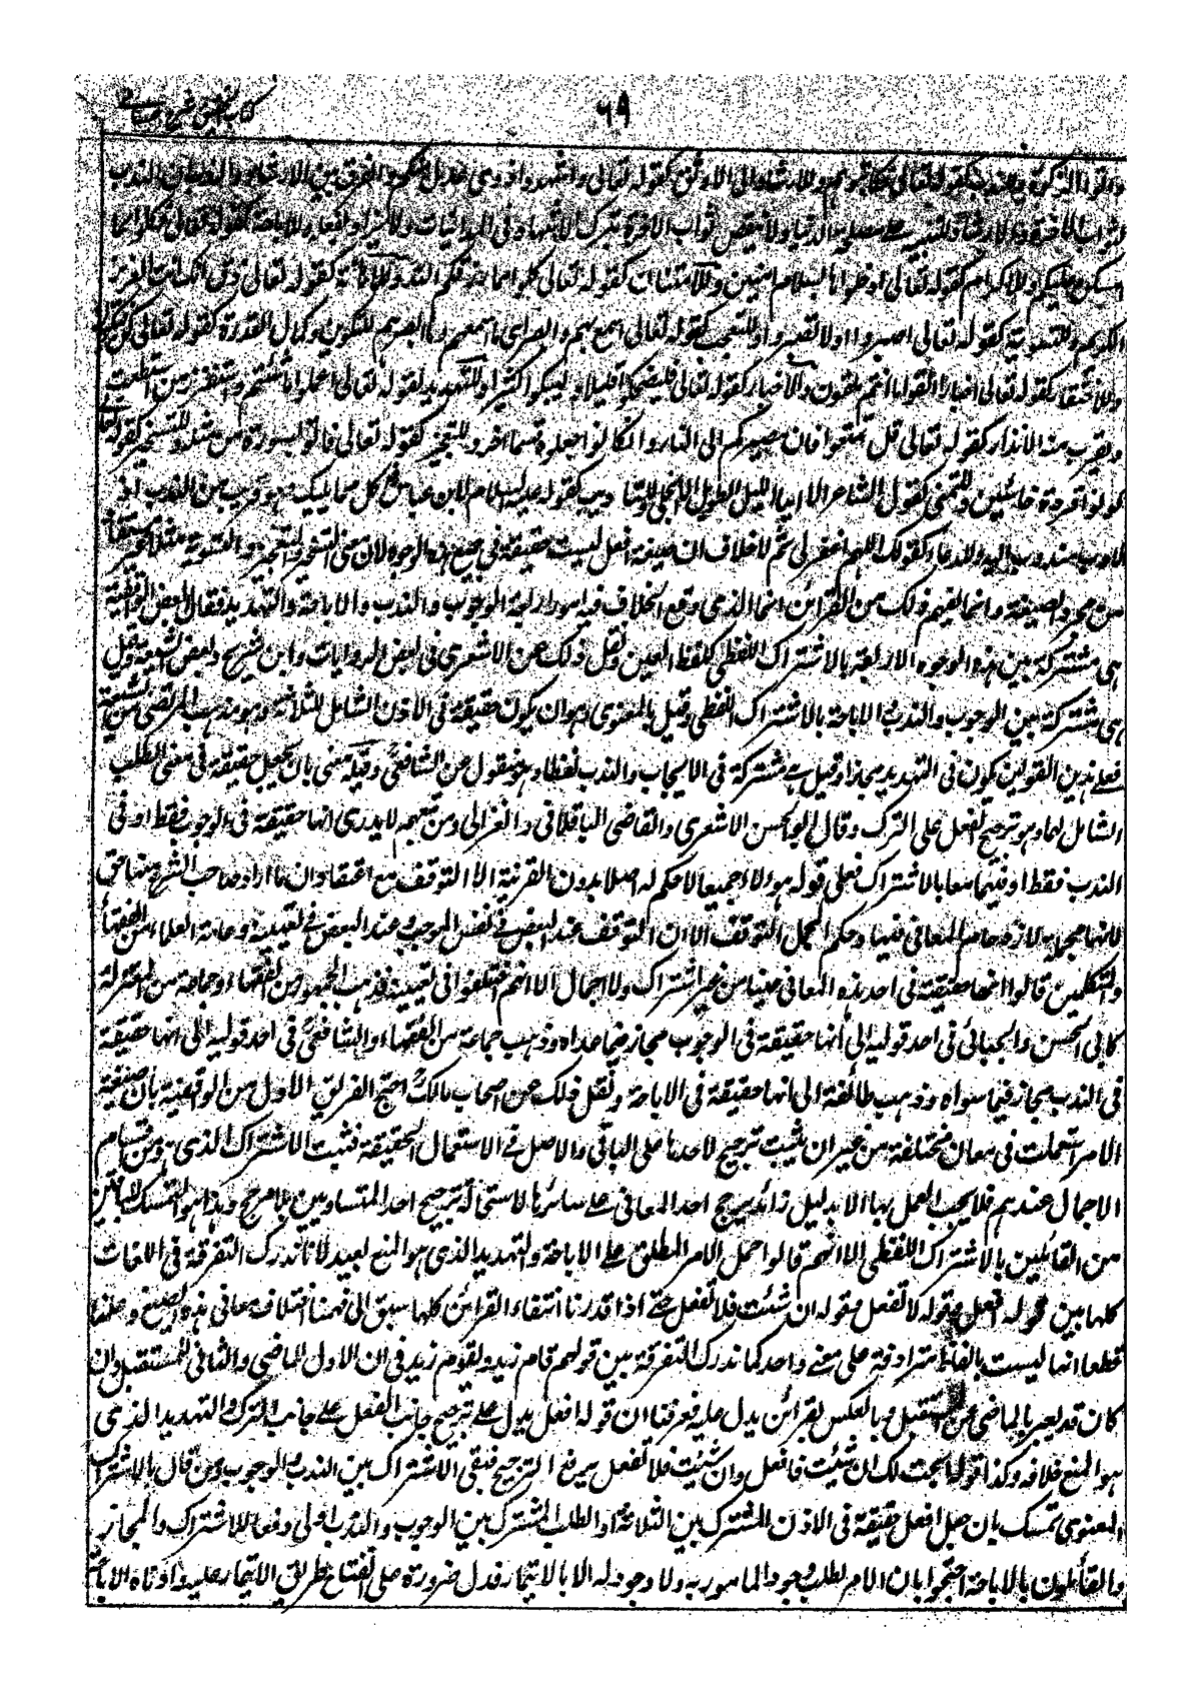 ٦٩
كتاب التحقيق شرح حسامى
واتوا الزكوة وللندب كقوله تعالى فكاتبوهم وللارشاد الى الاوثق كقوله تعالى واشهدوا ذوى عدل منكم والفرق بين الارشاد والندب ان الندب
لثواب الاخرة والارشاد للتنبيه على مصلحة الدنيا ولا ينقص ثواب الاخرة بترك الاشهاد فى المداينات ولا يزاد بفعله وللاباحة كقوله تعالى فكلوا مما
امسكن عليكم وللاكرام كقوله تعالى ادخلوها بسلام امنين وللامتنان كقوله تعالى كلوا مما رزقكم الله وللاهانة كقوله تعالى ذق انك انت العزيز
الكريم وللتسوية كقوله تعالى اصبروا او لا تصبروا وللتعجب كقوله تعالى اسمع بهم وابصر اى ما اسمعهم وما ابصرهم وللتكوين وكمال القدرة كقوله تعالى كن فيكون
وللاحتقار كقوله تعالى اخبارا القوا ما انتم ملقون وللاخبار كقوله تعالى فليضحكوا قليلا وليبكوا كثيرا وللتهديد كقوله تعالى اعملوا ما شئتم واستفزز من استطعت
ويقرب منه الانذار كقوله تعالى قل تمتعوا فان مصيركم الى النار وان كانوا جعلوه قسما اخر وللتعجيز كقوله تعالى فاتوا بسورة من مثله وللتسخير كقوله تعالى
كونوا قردة خاسئين وللتمنى كقول الشاعر الا ايها الليل الطويل الا انجلى وللتاديب كقوله عليه السلام لابن عباس كل مما يليك وهو قريب من الندب اذ
الادب مندوب اليه وللدعاء كقولك اللهم اغفر لى ثم لا خلاف ان صيغة افعل ليست حقيقة فى جميع هذه الوجوه لان معنى التسخير والتعجيز والتسوية مثلا غير مستفاد
من مجرد الصيغة وانما يفهم ذلك من القرائن انما الذى وقع الخلاف فيه امور اربعة الوجوب والندب والاباحة والتهديد فقال بعض الواقفية
هى مشتركة بين هذه الوجوه الاربعة بالاشتراك اللفظى كلفظ العين ونقل ذلك عن الاشعرى فى بعض الروايات وابن شريح وبعض الشيعة وقيل
هى مشتركة بين الوجوب والندب والاباحة بالاشتراك اللفظى وقيل بالمعنوى وهو ان يكون حقيقة فى الاذن الشامل للثلاثة وهو مذهب المرتضى من الشيعة
فعلى هذين القولين يكون فى التهديد مجازا وقيل هى مشتركة فى الايجاب والندب لفظا وهو منقول عن الشافعى وقيل معنى بان يجعل حقيقة فى معنى الطلب
الشامل لهما وهو ترجيح الفعل على الترك وقال ابو الحسن الاشعرى والقاضى الباقلانى والغزالى ومن تبعهم لا يدرى انها حقيقة فى الوجوب فقط او فى
الندب فقط او فيهما معا بالاشتراك فعلى قول هؤلاء جميعا لا حكم له اصلا بدون القرينة الا التوقف مع اعتقاد ان ما اراد صاحب الشرع منها حق
لانها مجملة لازدحام المعانى فيها وحكم المجمل التوقف الا ان التوقف عند البعض فى نفس الموجب وعند البعض فى تعيينه وعامة العلماء من الفقهاء
والمتكلمين قالوا انها حقيقة فى احد هذه المعانى عينا من غير اشتراك ولا اجمال الا انهم اختلفوا فى تعيينه فذهب الجمهور من الفقهاء وجماعة من المعتزلة
كابى الحسين والجبائى فى احد قوليه الى انها حقيقة فى الوجوب مجاز فيما عداه وذهب جماعة من الفقهاء والشافعى فى احد قوليه الى انها حقيقة
فى الندب مجاز فيما سواه وذهب طائفة الى انها حقيقة فى الاباحة ونقل ذلك عن اصحاب مالك احتج الفريق الاول من الواقفية بان صيغة
الامر استعملت فى معان مختلفة من غير ان يثبت ترجيح لاحدها على الباقى والاصل فى الاستعمال الحقيقة فثبت الاشتراك الذى هو من اقسام
الاجمال عندهم فلا يجب العمل بها الا بدليل زائد يرجح احد المعانى على سائرها لاستحالة ترجيح احد المتساويين بلا مرجح وهذا هو المتمسك للباقين
من القائلين بالاشتراك اللفظى الا انهم قالوا حمل الامر المطلق على الاباحة والتهديد الذى هو المنع بعيد لانا ندرك التفرقة فى اللغات
كلها بين قوله افعل وقوله لا تفعل وقوله ان شئت فلا تفعل حتى اذا قدرنا انتفاء القرائن كلها سبق الى فهمنا اختلاف معانى هذه الصيغ وعلمنا
قطعا انها ليست بالفاظ مترادفة على معنى واحد كما ندرك التفرقة بين قولهم قام زيد ويقوم زيد فى ان الاول للماضى والثانى للمستقبل وان
كان قد يعبر بالماضى عن المستقبل وبالعكس بقرائن يدل عليه فعرفنا ان قوله افعل يدل على ترجيح جانب الفعل على جانب الترك والتهديد الذى
هو المنع فلافه وكذا قوله ابحت لك ان شئت فافعل وان شئت فلا تفعل يرفع الترجيح فبقى الاشتراك بين الندب والوجوب ومن قال بالاشتراك
المعنوى تمسك بان جعل افعل حقيقة فى الاذن المشترك بين الثلاثة او الطلب المشترك بين الوجوب والندب اولى دفعا للاشتراك والمجاز
والقائلون بالاباحة احتجوا بان الامر لطلب وجود المامور به ولا وجود له الا بالايتمار فدل ضرورة على انفتاح طريق الايتمار عليه وادناه الاباحة